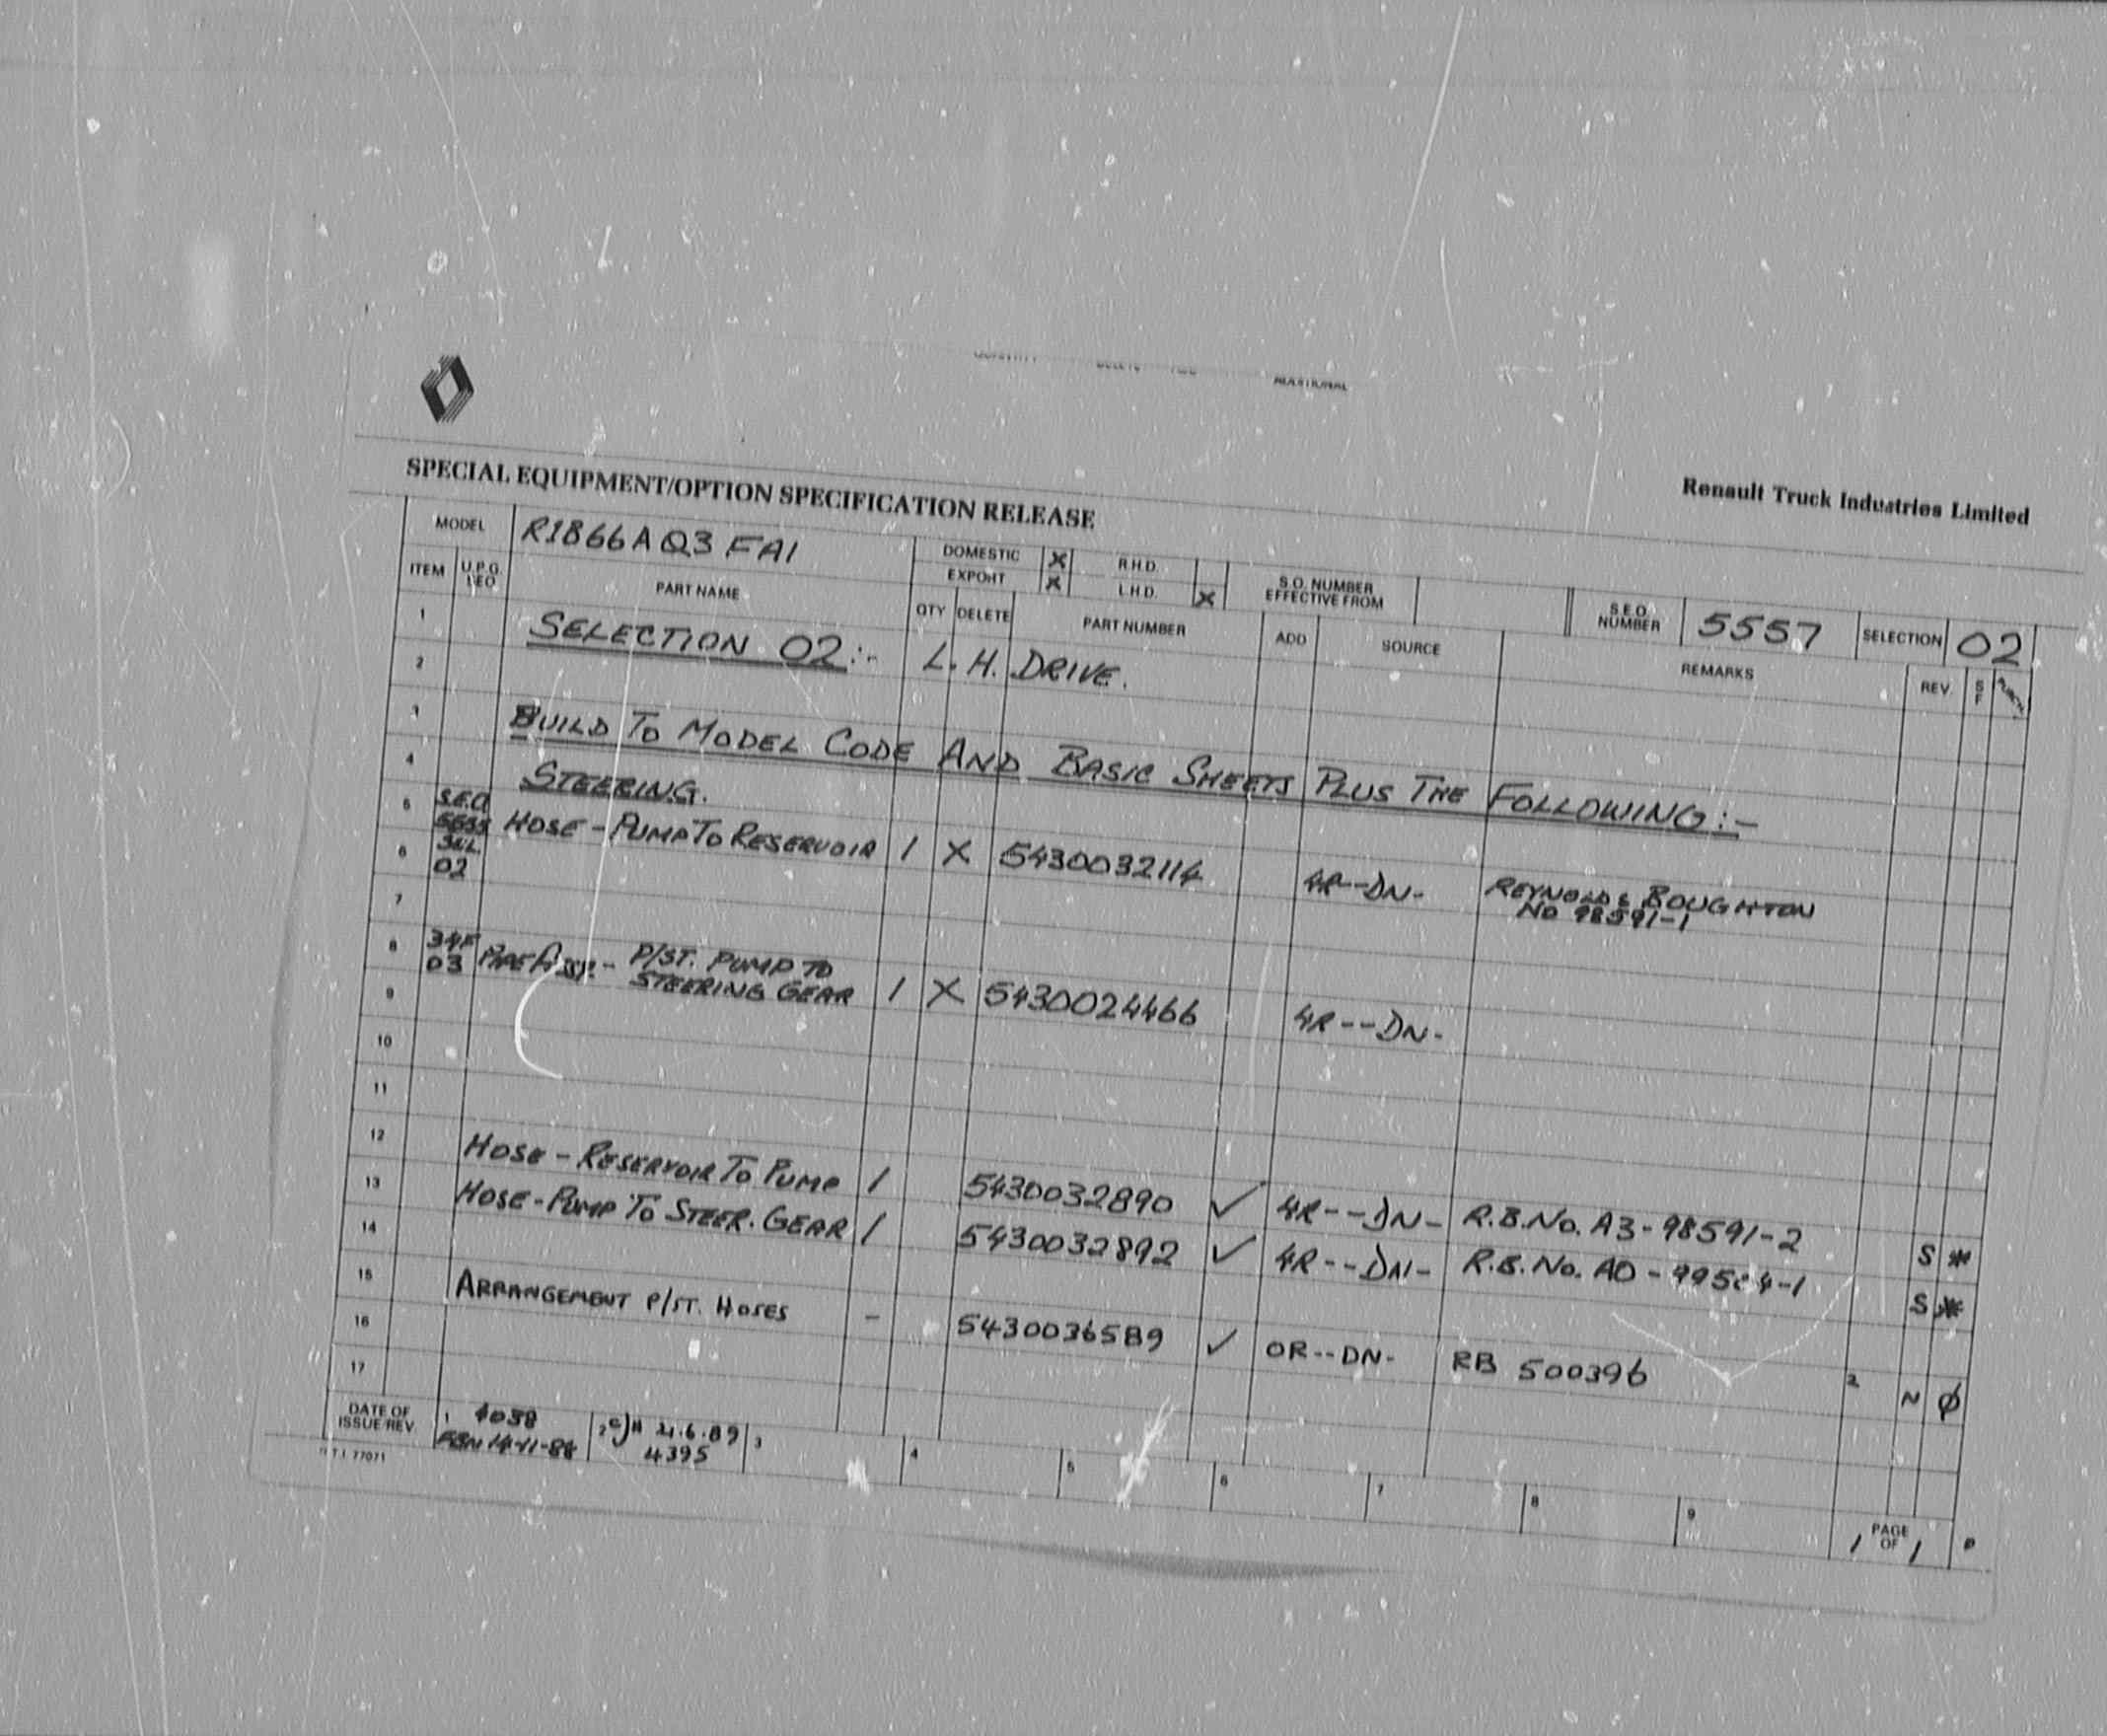 SPECIAL EQUIPMENT/OPTION SPECIFICATION RELEASE
Renault Truck Industries Limited
MODEL R1866AQ3 FA1 DOMESTIC X R.H.D. S.O. NUMBER EFFECTIVE FROM S.E.O. NUMBER 5557 SELECTION 02
EXPORT X L.H.D. X
ITEM U.P.G. PART NAME QTY DELETE PART NUMBER ADD SOURCE REMARKS REV S F
1 SELECTION 02:- L.H. DRIVE.
2
3 BUILD TO MODEL CODE AND BASIC SHEETS PLUS THE FOLLOWING:-
4 STEERING.
5 S.E.O HOSE - PUMP TO RESERVOIR 1 X 5430032114 4R--DN- REYNOLDS BOUGHTON
6 SEL. 02 No 98591-1
7
8 34F 03 PIPE ASSY. - P/ST. PUMP TO
STEERING GEAR 1 X 5430024466 4R---DN-
9
10
11
12 HOSE - RESERVOIR TO PUMP 1 5430032890 ✓ 4R---DN- R.B.No. A3-98591-2 S *
13 HOSE - PUMP TO STEER. GEAR 1 5430032892 ✓ 4R---DN- R.B.No. AO - S *
14
15 ARRANGEMENT P/ST. HOSES - 5430036589 ✓ OR--DN- RB 500396 2 N Ø
16
17
DATE OF ISSUE/REV 1 4038 2 21.6.89 3 4 5 6 7 8 9 1 PAGE OF 1
4395
77071